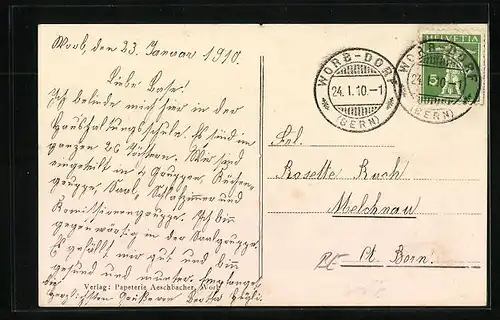 Worb, den 23. Januar 1910.
Liebe Base!
Ich befinde mich hier in der
Haushaltungsschule. Es sind im
ganzen 26 Töchtern. Wir sind
eingeteilt in 4 Gruppen, Küchen-
gruppe, Saal, Schlafzimmer und
Kommissionengruppe. Ich bin
gegenwärtig in der Saalgruppe.
Es gefällt mir gut und bin
gesund und munter. Empfanget
die herzlichsten Grüße von Bertha
Verlag: Papeterie Aeschbacher, Worb
WORB-DORF
24.I.10.-1
(BERN)
WORB-DORF
24.I.10.-1
(BERN)
HELVETIA
5
Frl.
Rosette
Melchnau
Kt. Bern.